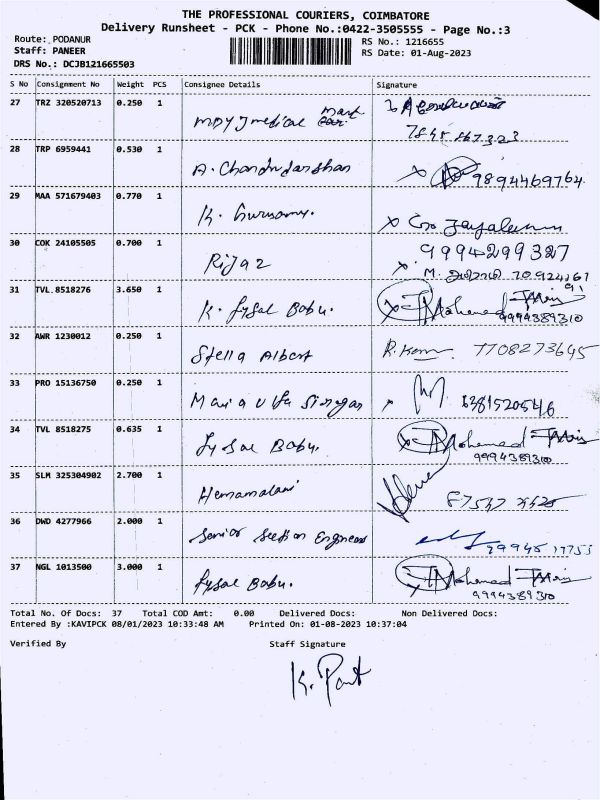 THE PROFESSIONAL COURIERS, COIMBATORE
Delivery Runsheet - PCK - Phone No.:0422-3505555 - Page No.:3
Route: PODANUR
RS No.: 1216655
Staff: PANEER
RS Date: 01-Aug-2023
DRS No.: DCJB121665503
S No Consignment No Weight PCS Consignee Details Signature
27 TRZ 320520713 0.250 1 medical
28 TRP 6959441 0.530 1 A. Chandrdarshan 9894469764
29 MAA 571679403 0.770 1 K. Gurusamy.
30 COK 24105505 0.700 1 Rijaz 9994299327
31 TVL 8518276 3.650 1 K. Fysal Babu. Mohamed 9994389310
32 AWR 1230012 0.250 1 Stella Albert 7708273645
33 PRO 15136750 0.250 1 6381520546
34 TVL 8518275 0.635 1 Fysal Babu. Mohamed 9994389310
35 SLM 325304902 2.700 1 Hemamalani
36 DWD 4277966 2.000 1 Senior Section Engineer
37 NGL 1013500 3.000 1 Fysal Babu. Mohamed 9994389310
Total No. Of Docs: 37 Total COD Amt: 0.00 Delivered Docs: Non Delivered Docs:
Entered By :KAVIPCK 08/01/2023 10:33:48 AM Printed On: 01-08-2023 10:37:04
Verified By Staff Signature